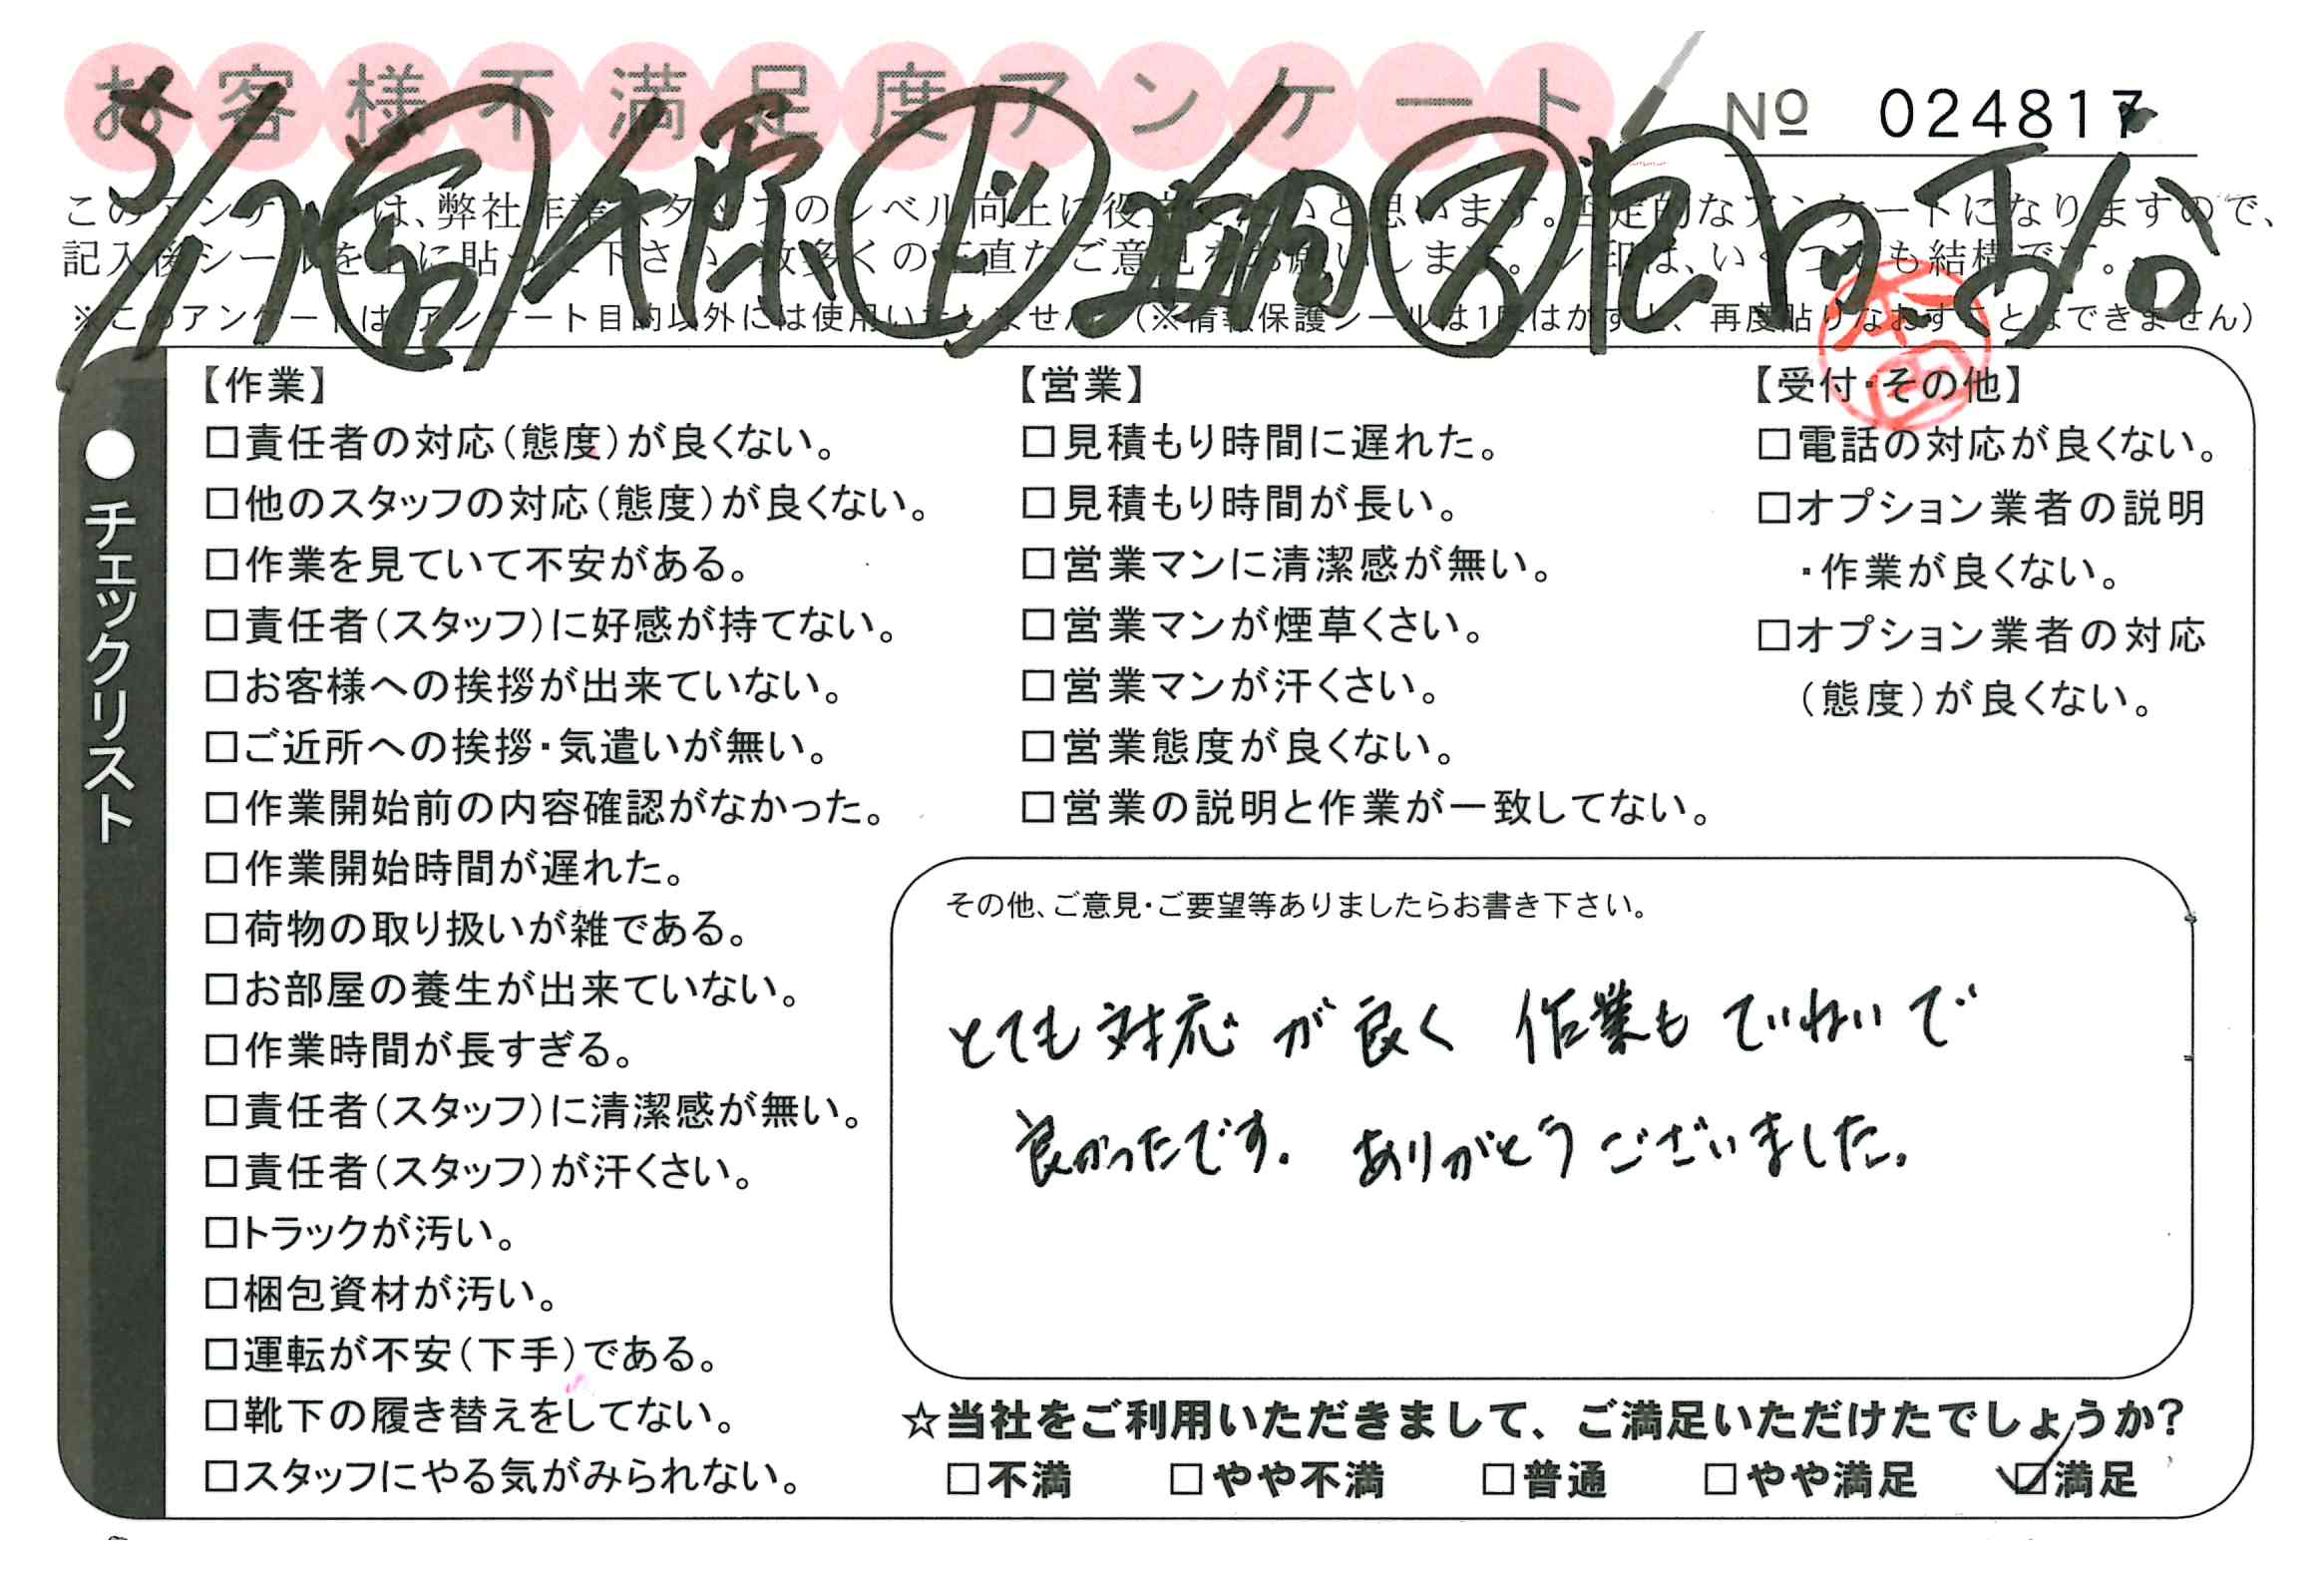 お客様不満足度アンケート
№ 024817
このアンケートは、弊社作業スタッフのレベル向上に役立てたいと思います。否定的なアンケートになりますので、
記入後シールを上に貼って下さい。数多くの正直なご意見をお願いします。レ印は、いくつでも結構です。
※このアンケートは、アンケート目的以外には使用いたしません。(※情報保護シールは1度はがすと、再度貼りなおすことはできません)
●チェックリスト
【作業】
□責任者の対応(態度)が良くない。
□他のスタッフの対応(態度)が良くない。
□作業を見ていて不安がある。
□責任者(スタッフ)に好感が持てない。
□お客様への挨拶が出来ていない。
□ご近所への挨拶・気遣いが無い。
□作業開始前の内容確認がなかった。
□作業開始時間が遅れた。
□荷物の取り扱いが雑である。
□お部屋の養生が出来ていない。
□作業時間が長すぎる。
□責任者(スタッフ)に清潔感が無い。
□責任者(スタッフ)が汗くさい。
□トラックが汚い。
□梱包資材が汚い。
□運転が不安(下手)である。
□靴下の履き替えをしてない。
□スタッフにやる気がみられない。
【営業】
□見積もり時間に遅れた。
□見積もり時間が長い。
□営業マンに清潔感が無い。
□営業マンが煙草くさい。
□営業マンが汗くさい。
□営業態度が良くない。
□営業の説明と作業が一致してない。
【受付・その他】
□電話の対応が良くない。
□オプション業者の説明
・作業が良くない。
□オプション業者の対応
(態度)が良くない。
その他、ご意見・ご要望等ありましたらお書き下さい。
とても対応が良く 作業もていねいで
良かったです。ありがとうございました。
☆当社をご利用いただきまして、ご満足いただけたでしょうか?
□不満 □やや不満 □普通 □やや満足 ☑満足